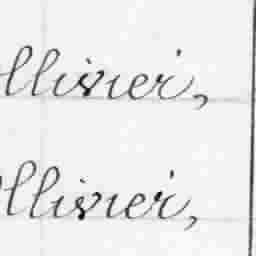 ollivier,
ollivier,